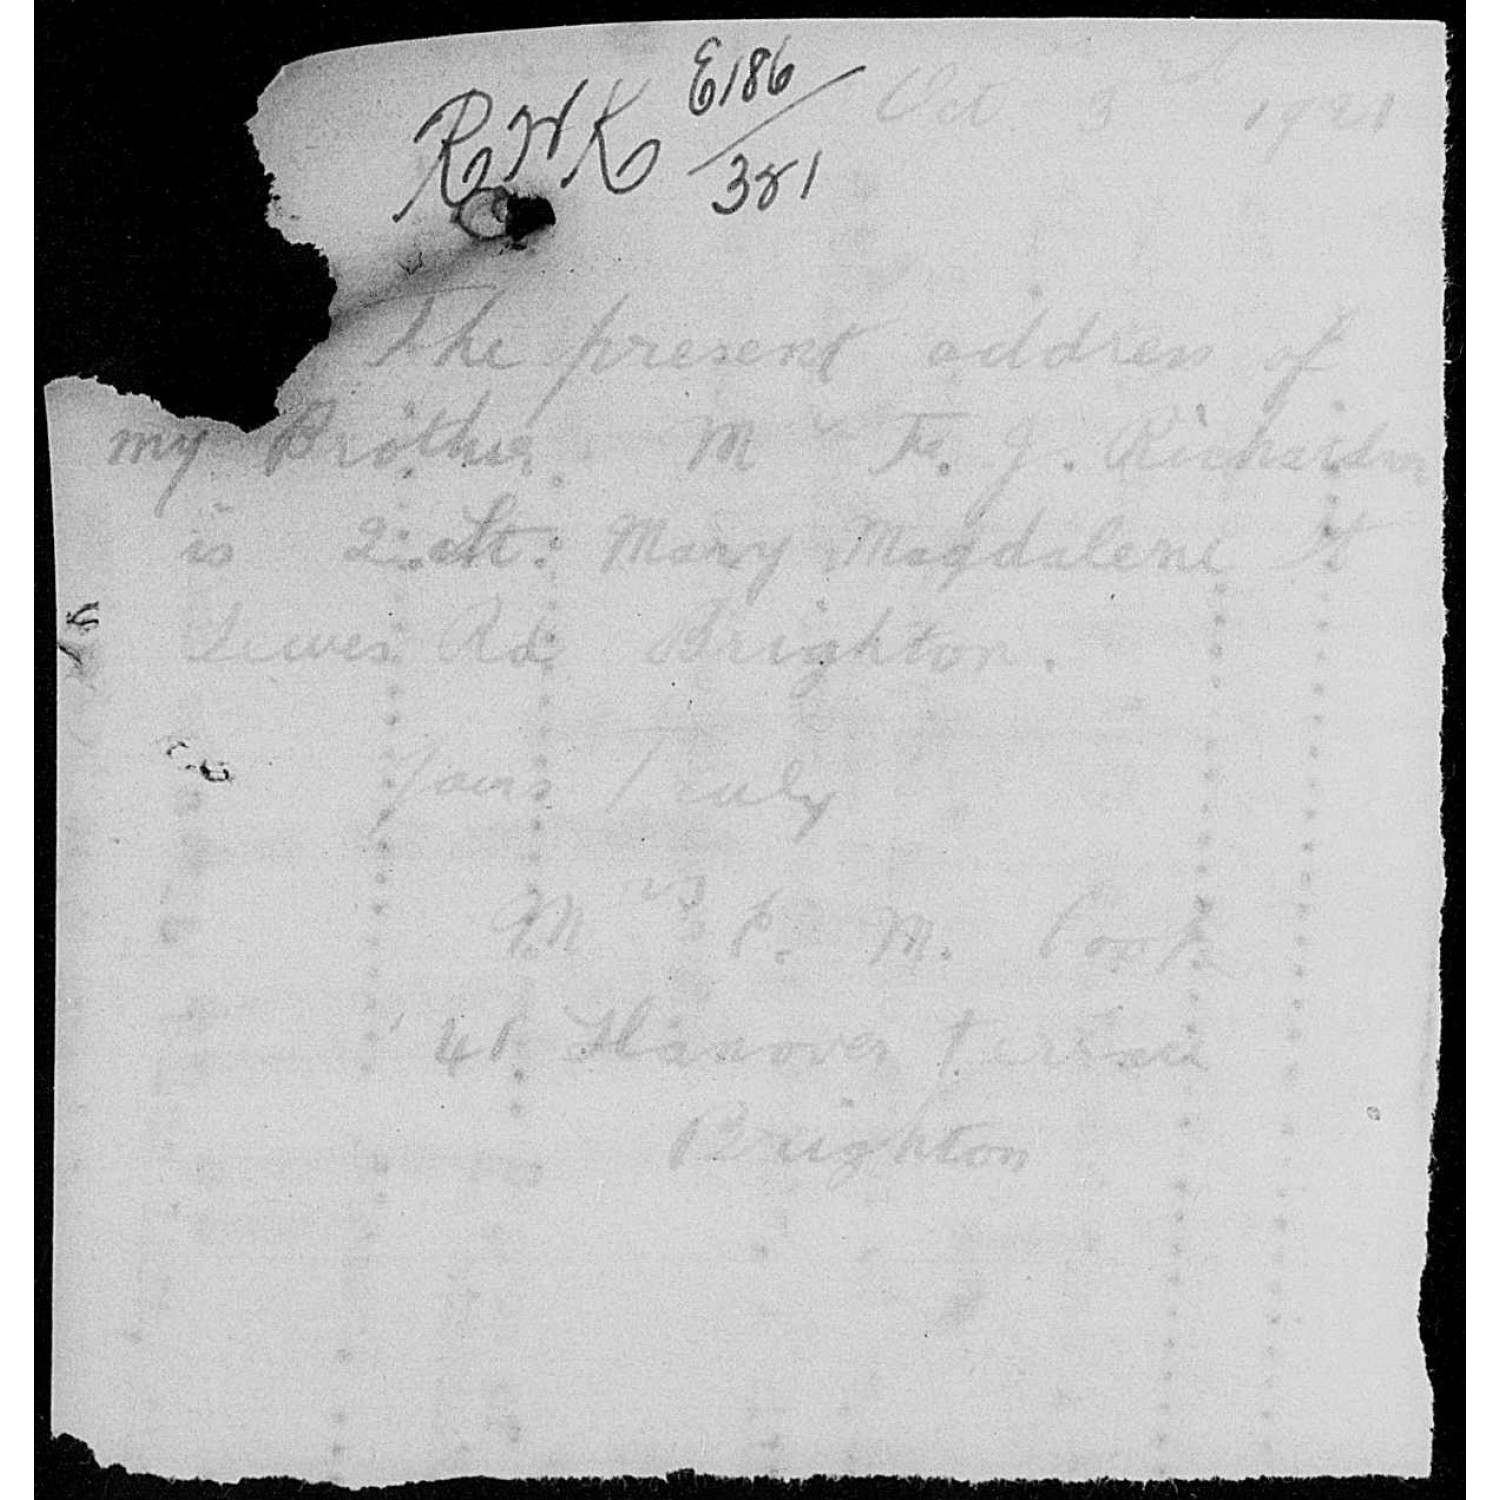 RWK E186/381
Oct 3rd 1921
The present address of
my Brother. Mr F. J. Richardson
is 2. St. Mary Magdalene St
Lewes Rd Brighton.
Yours Truly
Mrs E. M. Cook
41 Hanover Terrace
Brighton